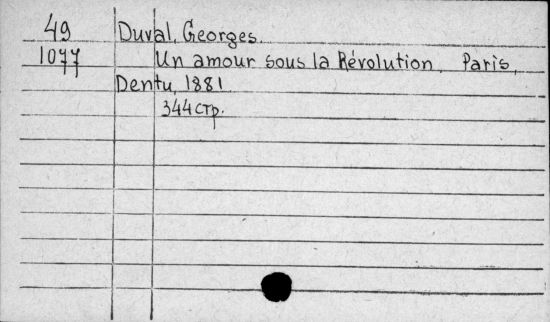 49 Duval, Georges.
1077 Un amour sous la Révolution. Paris,
Dentu, 1881
344 стр.